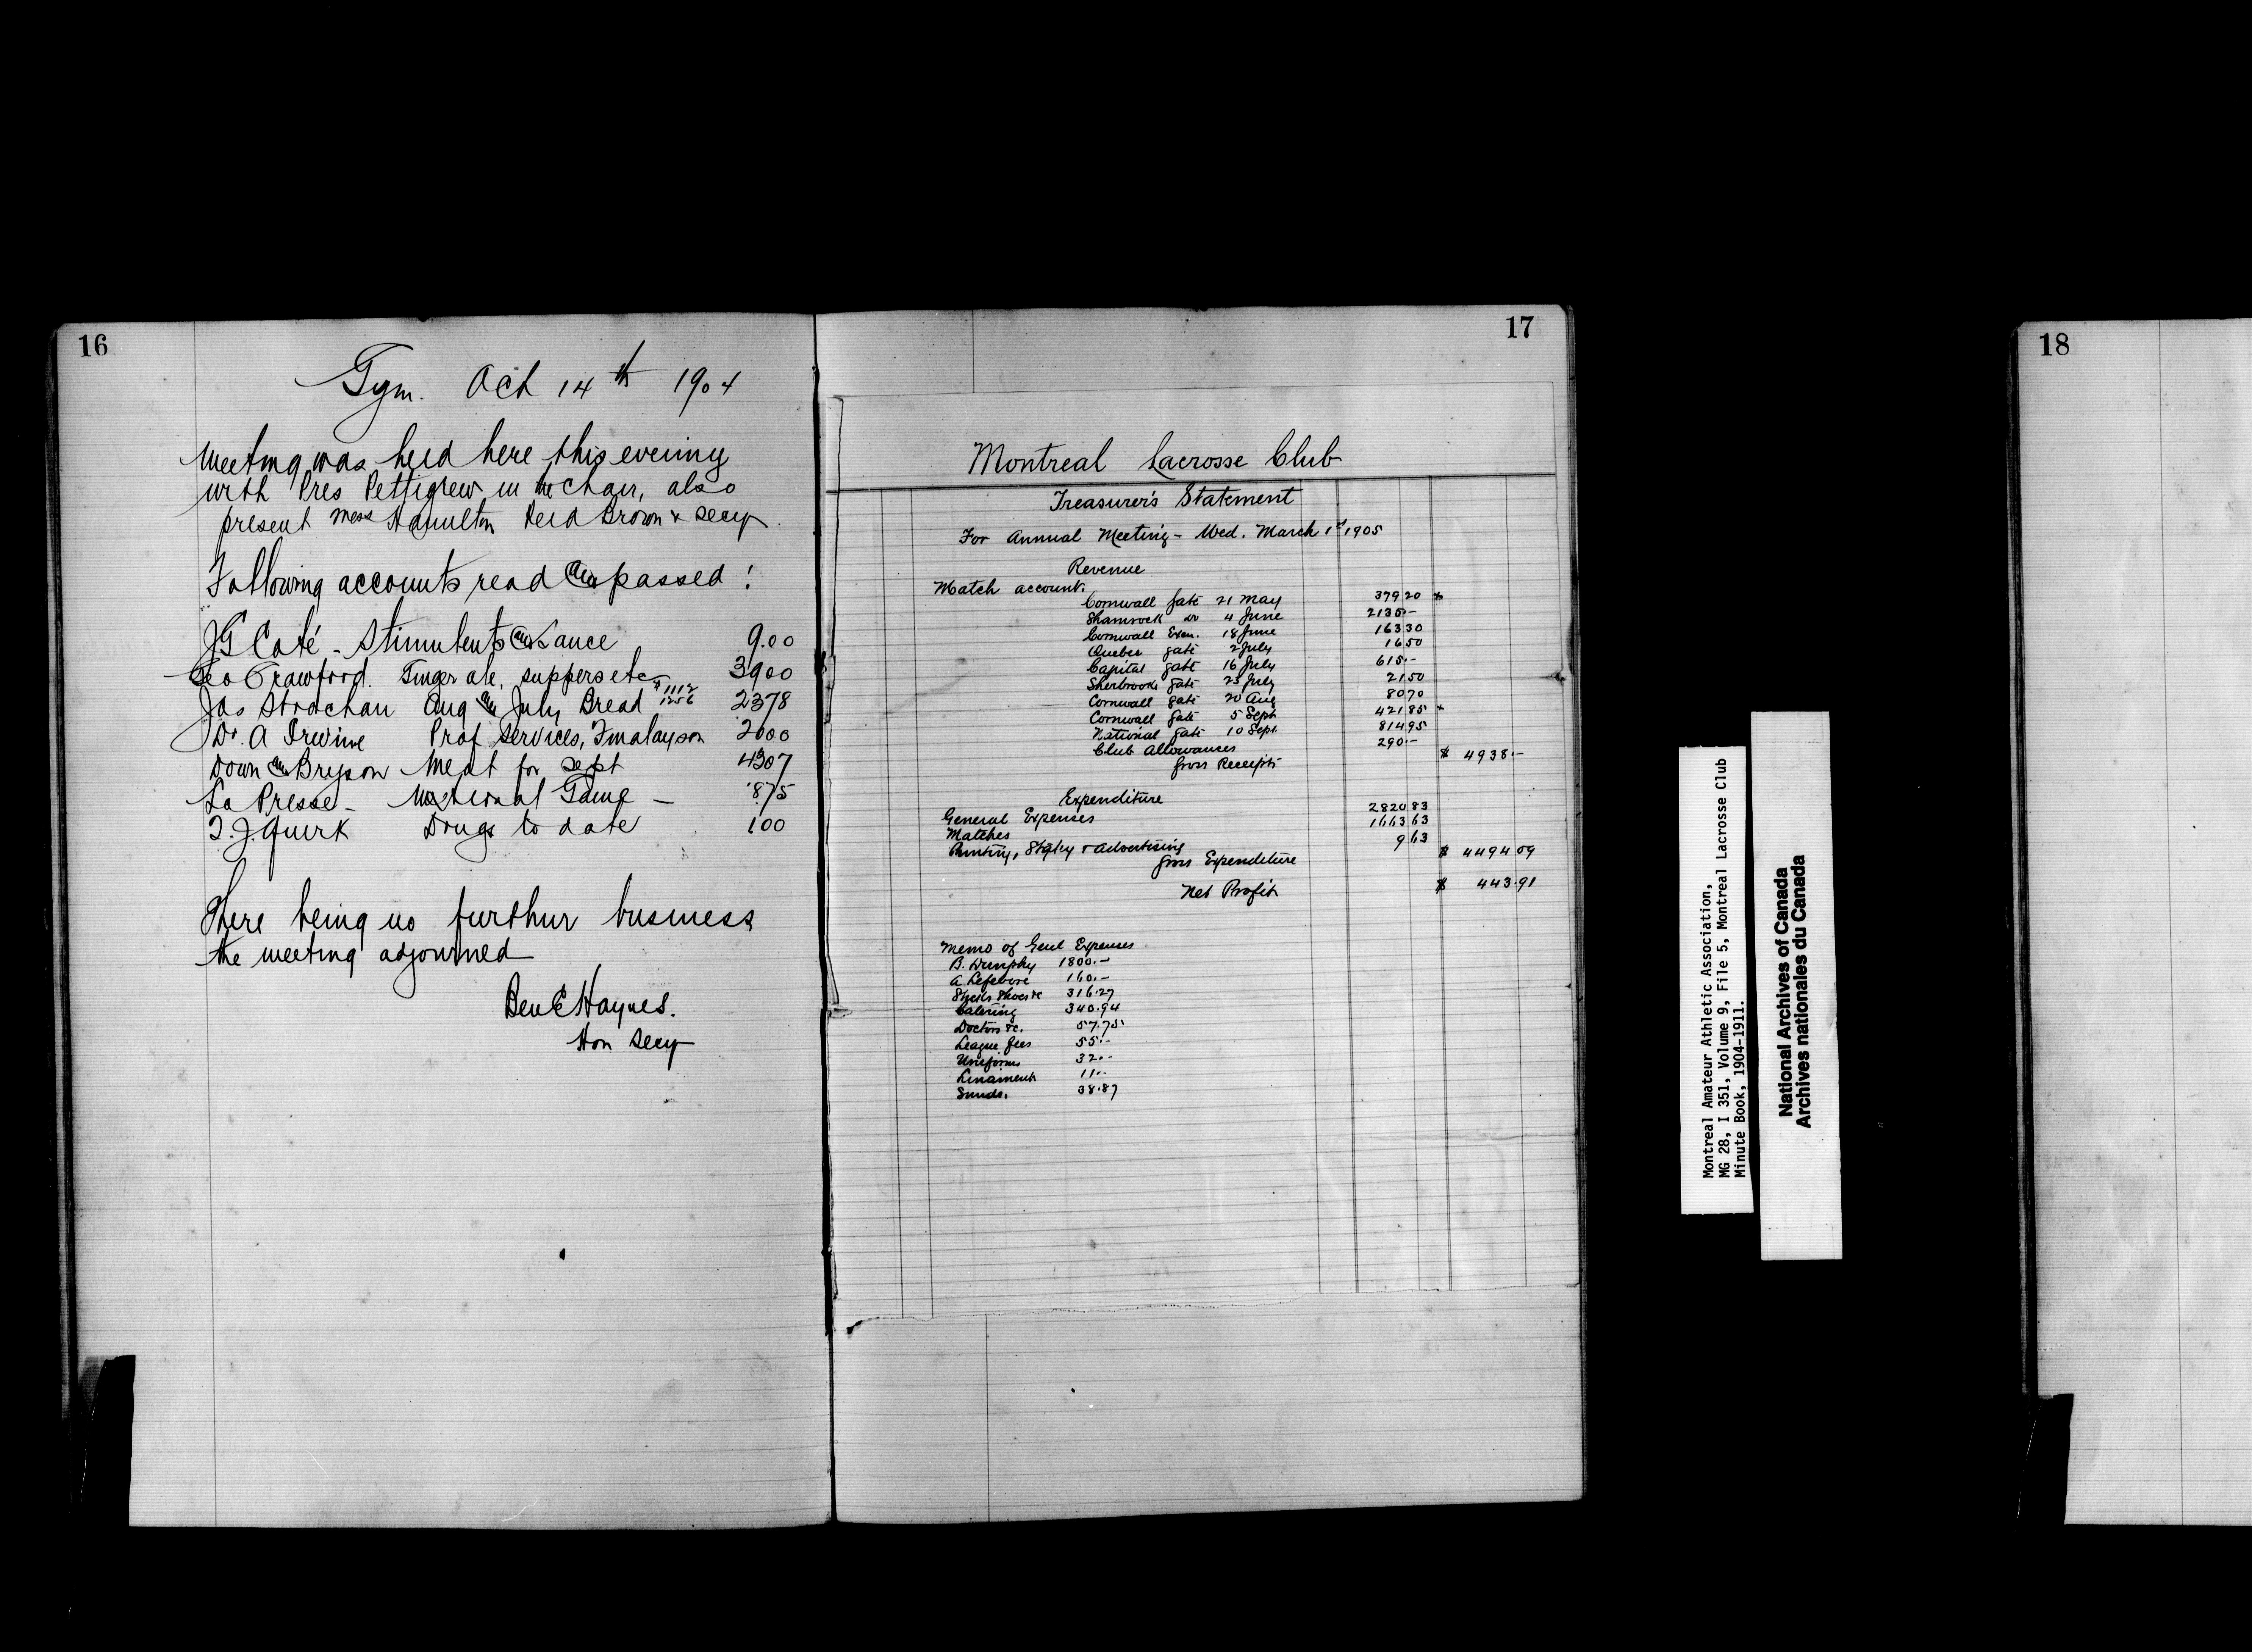 16
Gym. Oct 14th 1904
Meeting was held here this evening
with Pres Pettigrew in the chair, also
present Mess Hamilton Reid Brown & Secy.
Following accounts read and passed!
JG Coté - Stimulents and Lance 9.00
Geo Crawford. Ginger ale, suppers etc 39 00
Jas Strachan Aug and July Bread $11 12 12 56 23 78
Dr. A Irwine Prof Services, Finalayson 20 00
Down and Bryson Meat for Sept 43 07
La Presse - National Game - 8 75
T. J. Quirk Drugs to date 1 00
There being no furthur business
the meeting adjourned
Ben C Haynes.
Hon Secy
17
Montreal Lacrosse Club
Treasurer's Statement
For Annual Meeting - Wed. March 1st 1905
Revenue
Match account.
Cornwall gate 21 May 379 20 x
Shamrock do 4 June 2135.-
Cornwall Exn. 18 June 163 30
Quebec gate 2 July 16 50
Capital gate 16 July 615.-
Sherbrooke gate 23 July 21 50
Cornwall gate 20 Aug 80 70
Cornwall gate 5 Sept 421 85 x
National gate 10 Sept. 814 95
Club Allowances 290.-
Gross Receipts $ 4938.-
Expenditure
General Expenses 2820 83
Matches 1663 63
Printing, Staty & Advertising 9 63
Gross Expenditure $ 4494 09
Net Profit $ 443.91
Memo of Genl Expenses
B. Dunphy 1800.-
A. Lefebvre 160.-
Sticks Shoes &c 316.27
Catering 340.94
Doctors &c. 57.75
League fees 55.-
Uniforms 32.-
Linament 11.-
Sunds. 38.87
Montreal Amateur Athletic Association,
MG 28, I 351, Volume 9, File 5, Montreal Lacrosse Club
Minute Book, 1904-1911.
National Archives of Canada
Archives nationales du Canada
18